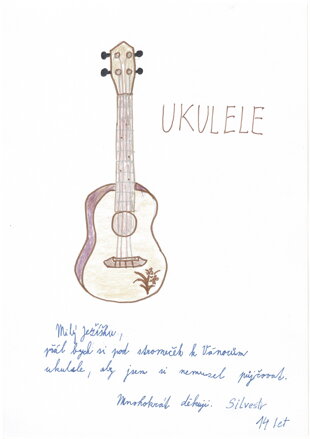 UKULELE
Milý Ježíšku,
přál bych si pod stromeček k Vánocům
ukulele, aby jsem si nemusel půjčovat.
Mnohokrát děkuji. Silvestr
14 let